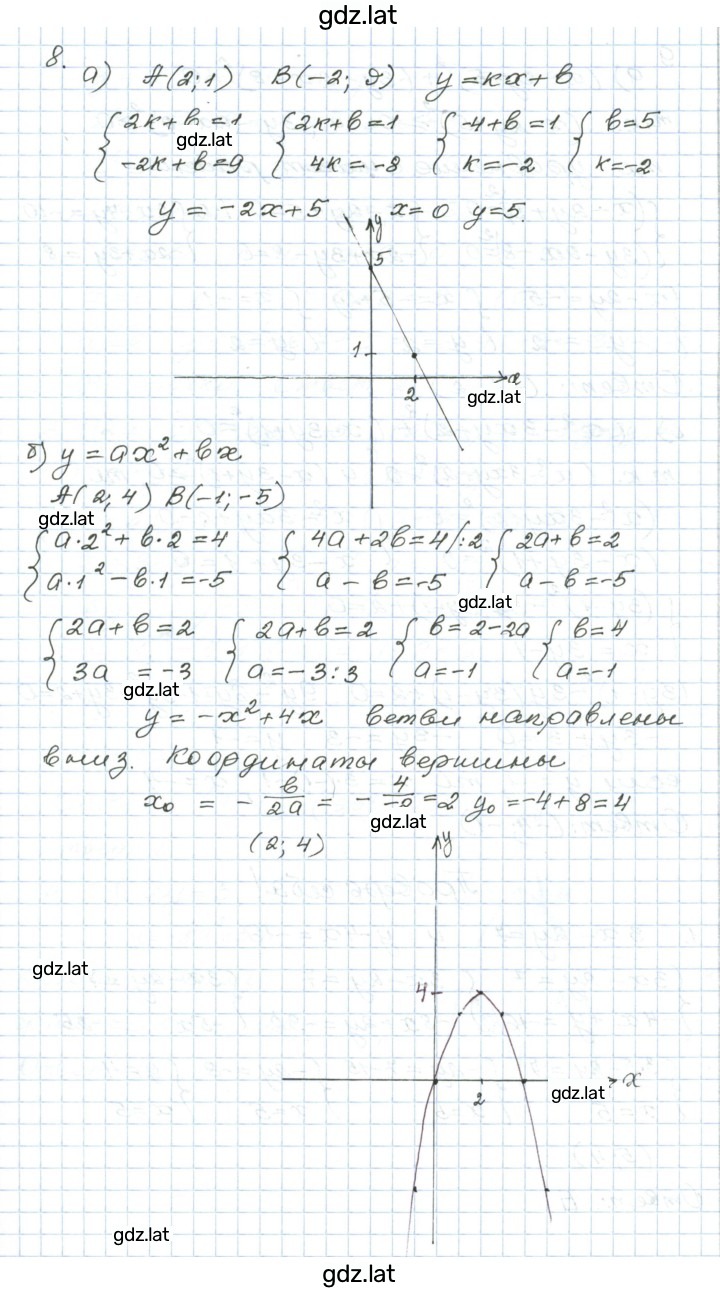 gdz.lat
8. а) A(2; 1) B(-2; 9) y = kx + b
{ 2k + b = 1 { 2k + b = 1 { -4 + b = 1 { b = 5
gdz.lat
{ -2k + b = 9 { 4k = -8 { k = -2 { k = -2
y = -2x + 5 x = 0 y = 5.
y
5
1
x
2
gdz.lat
б) y = ax² + bx
A(2; 4) B(-1; -5)
gdz.lat
{ a·2² + b·2 = 4 { 4a + 2b = 4 /:2 { 2a + b = 2
{ a·1² - b·1 = -5 { a - b = -5 { a - b = -5
gdz.lat
{ 2a + b = 2 { 2a + b = 2 { b = 2 - 2a { b = 4
{ 3a = -3 { a = -3 : 3 { a = -1 { a = -1
gdz.lat
y = -x² + 4x ветви направлены
вниз. Координаты вершины
x₀ = - b/2a = - 4/-2 = 2 y₀ = -4 + 8 = 4
gdz.lat
(2; 4)
y
gdz.lat
4
x
2
gdz.lat
gdz.lat
gdz.lat